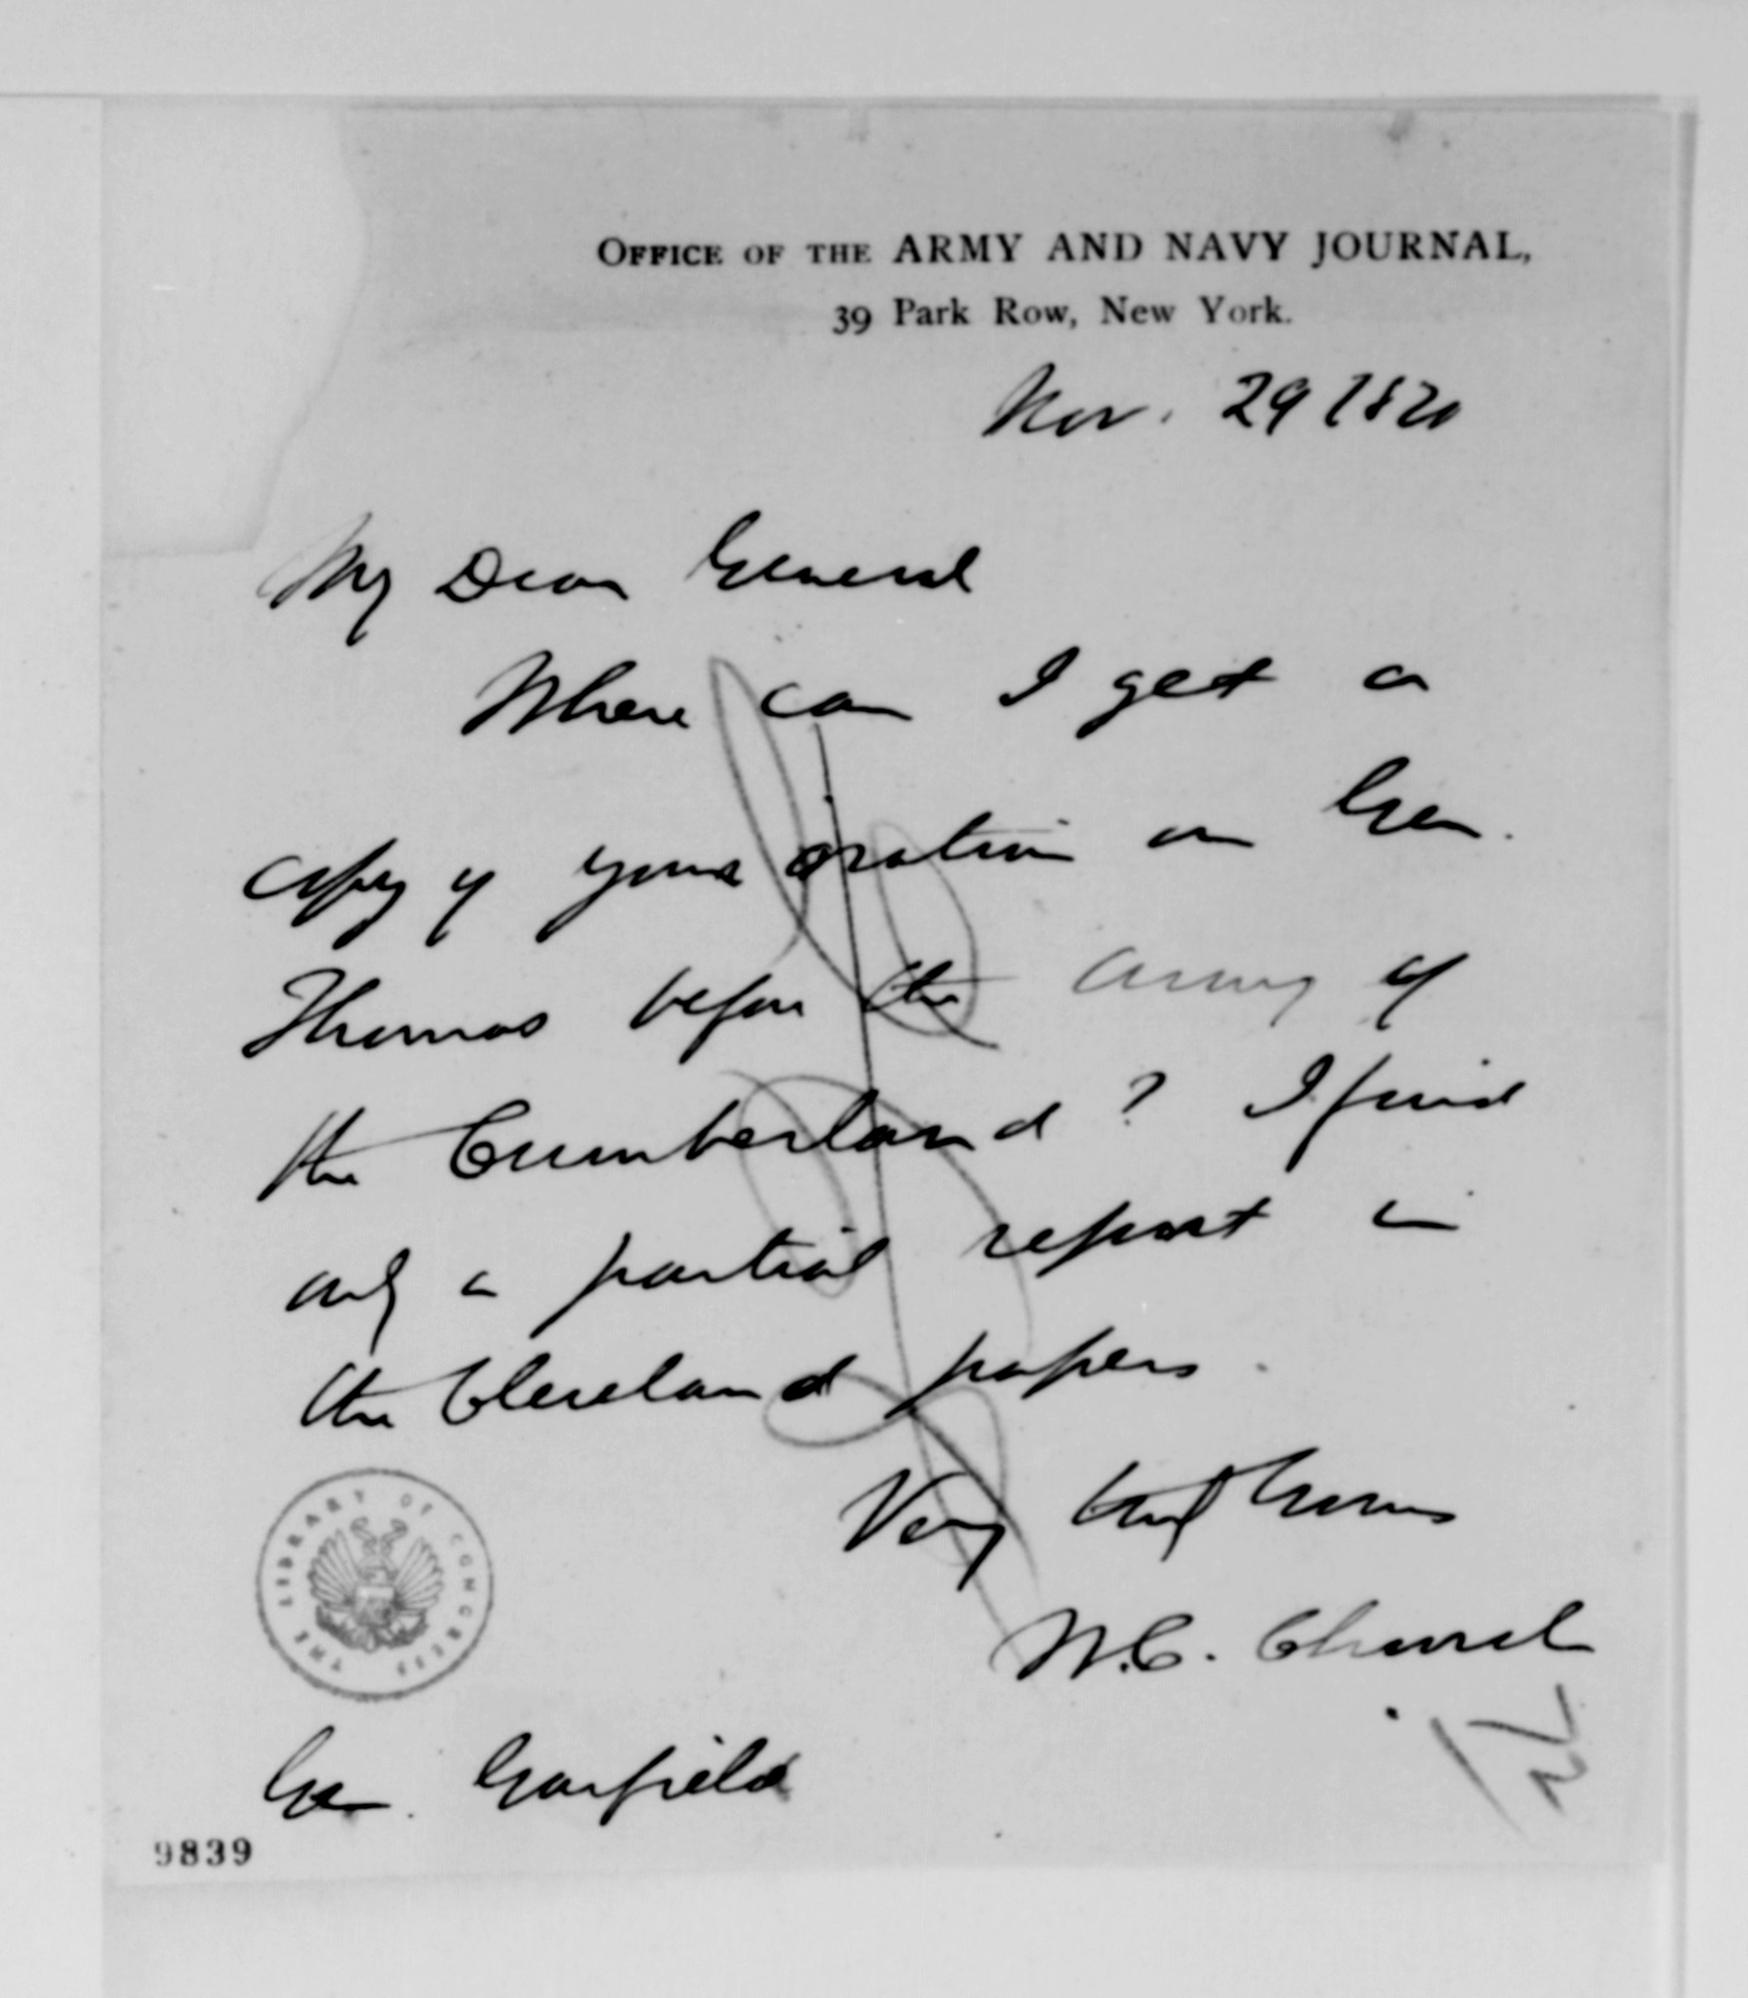 OFFICE OF THE ARMY AND NAVY JOURNAL,
39 Park Row, New York.
Nov. 29 1870
My Dear General
Where can I get a
copy of your oration on Gen.
Thomas before the Army of
the Cumberland? I find
only a partial report in
the Cleveland papers.
Very truly Yours
W.C. Church
THE LIBRARY OF CONGRESS
Gen. Garfield
9839